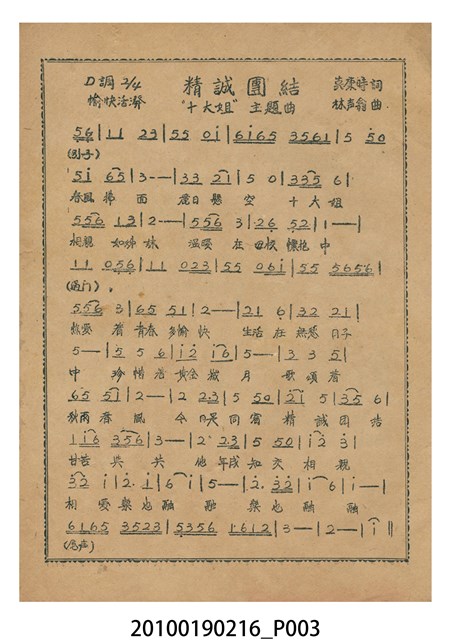 D調 2/4 精誠團結 詞
愉快活潑 "十大姐" 主題曲 林聲翕曲
56|11 23|55 0i|6165 3561|5 50
(引子)
5i 65|3--|33 21|5 0|335 6|
春風拂面 麗日懸空 十大姐
556 13|2--|556 3|26 52|1--|
親親如姊妹 溫暖在母校懷抱中
11 056|11 023|55 06i|55 5656|
(過門)
556 3|65 51|2--|21 6|32 21|
熱愛着青春多愉快 生活在無愁日子
5--|5 5 6|i2 i6|5--|3 3 5|
中 珍惜着黃金歲月 歌頌着
65 51|2--|2 23|5 50|2i 5|35 6|
秋雨春風 今日是同窗 精誠團結
1i6 356|3--|2· 23|5 50|i2 3|
甘苦共共 他年成知交 相親
32 i|2· i|6 i|5--|2· 32|i 6|i--|
相愛樂也融融 樂也融融
6165 3523|5356 1612|3--|2--|i||
(尾声)
20100190216_P003